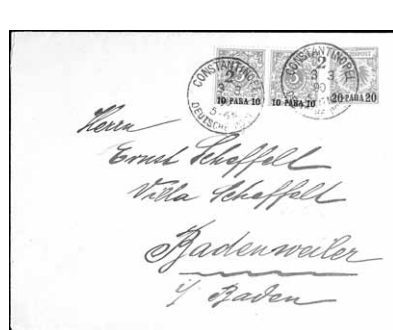 CONSTANTINOPEL
2
3 3
DEUTSCHE
10 PARA 10
10 PARA 10
CONSTANTINOPEL
2
3 3
90
20 PARA 20
Herrn
Ernst Scheffelt
Villa Scheffelt
Badenweiler
i/ Baden